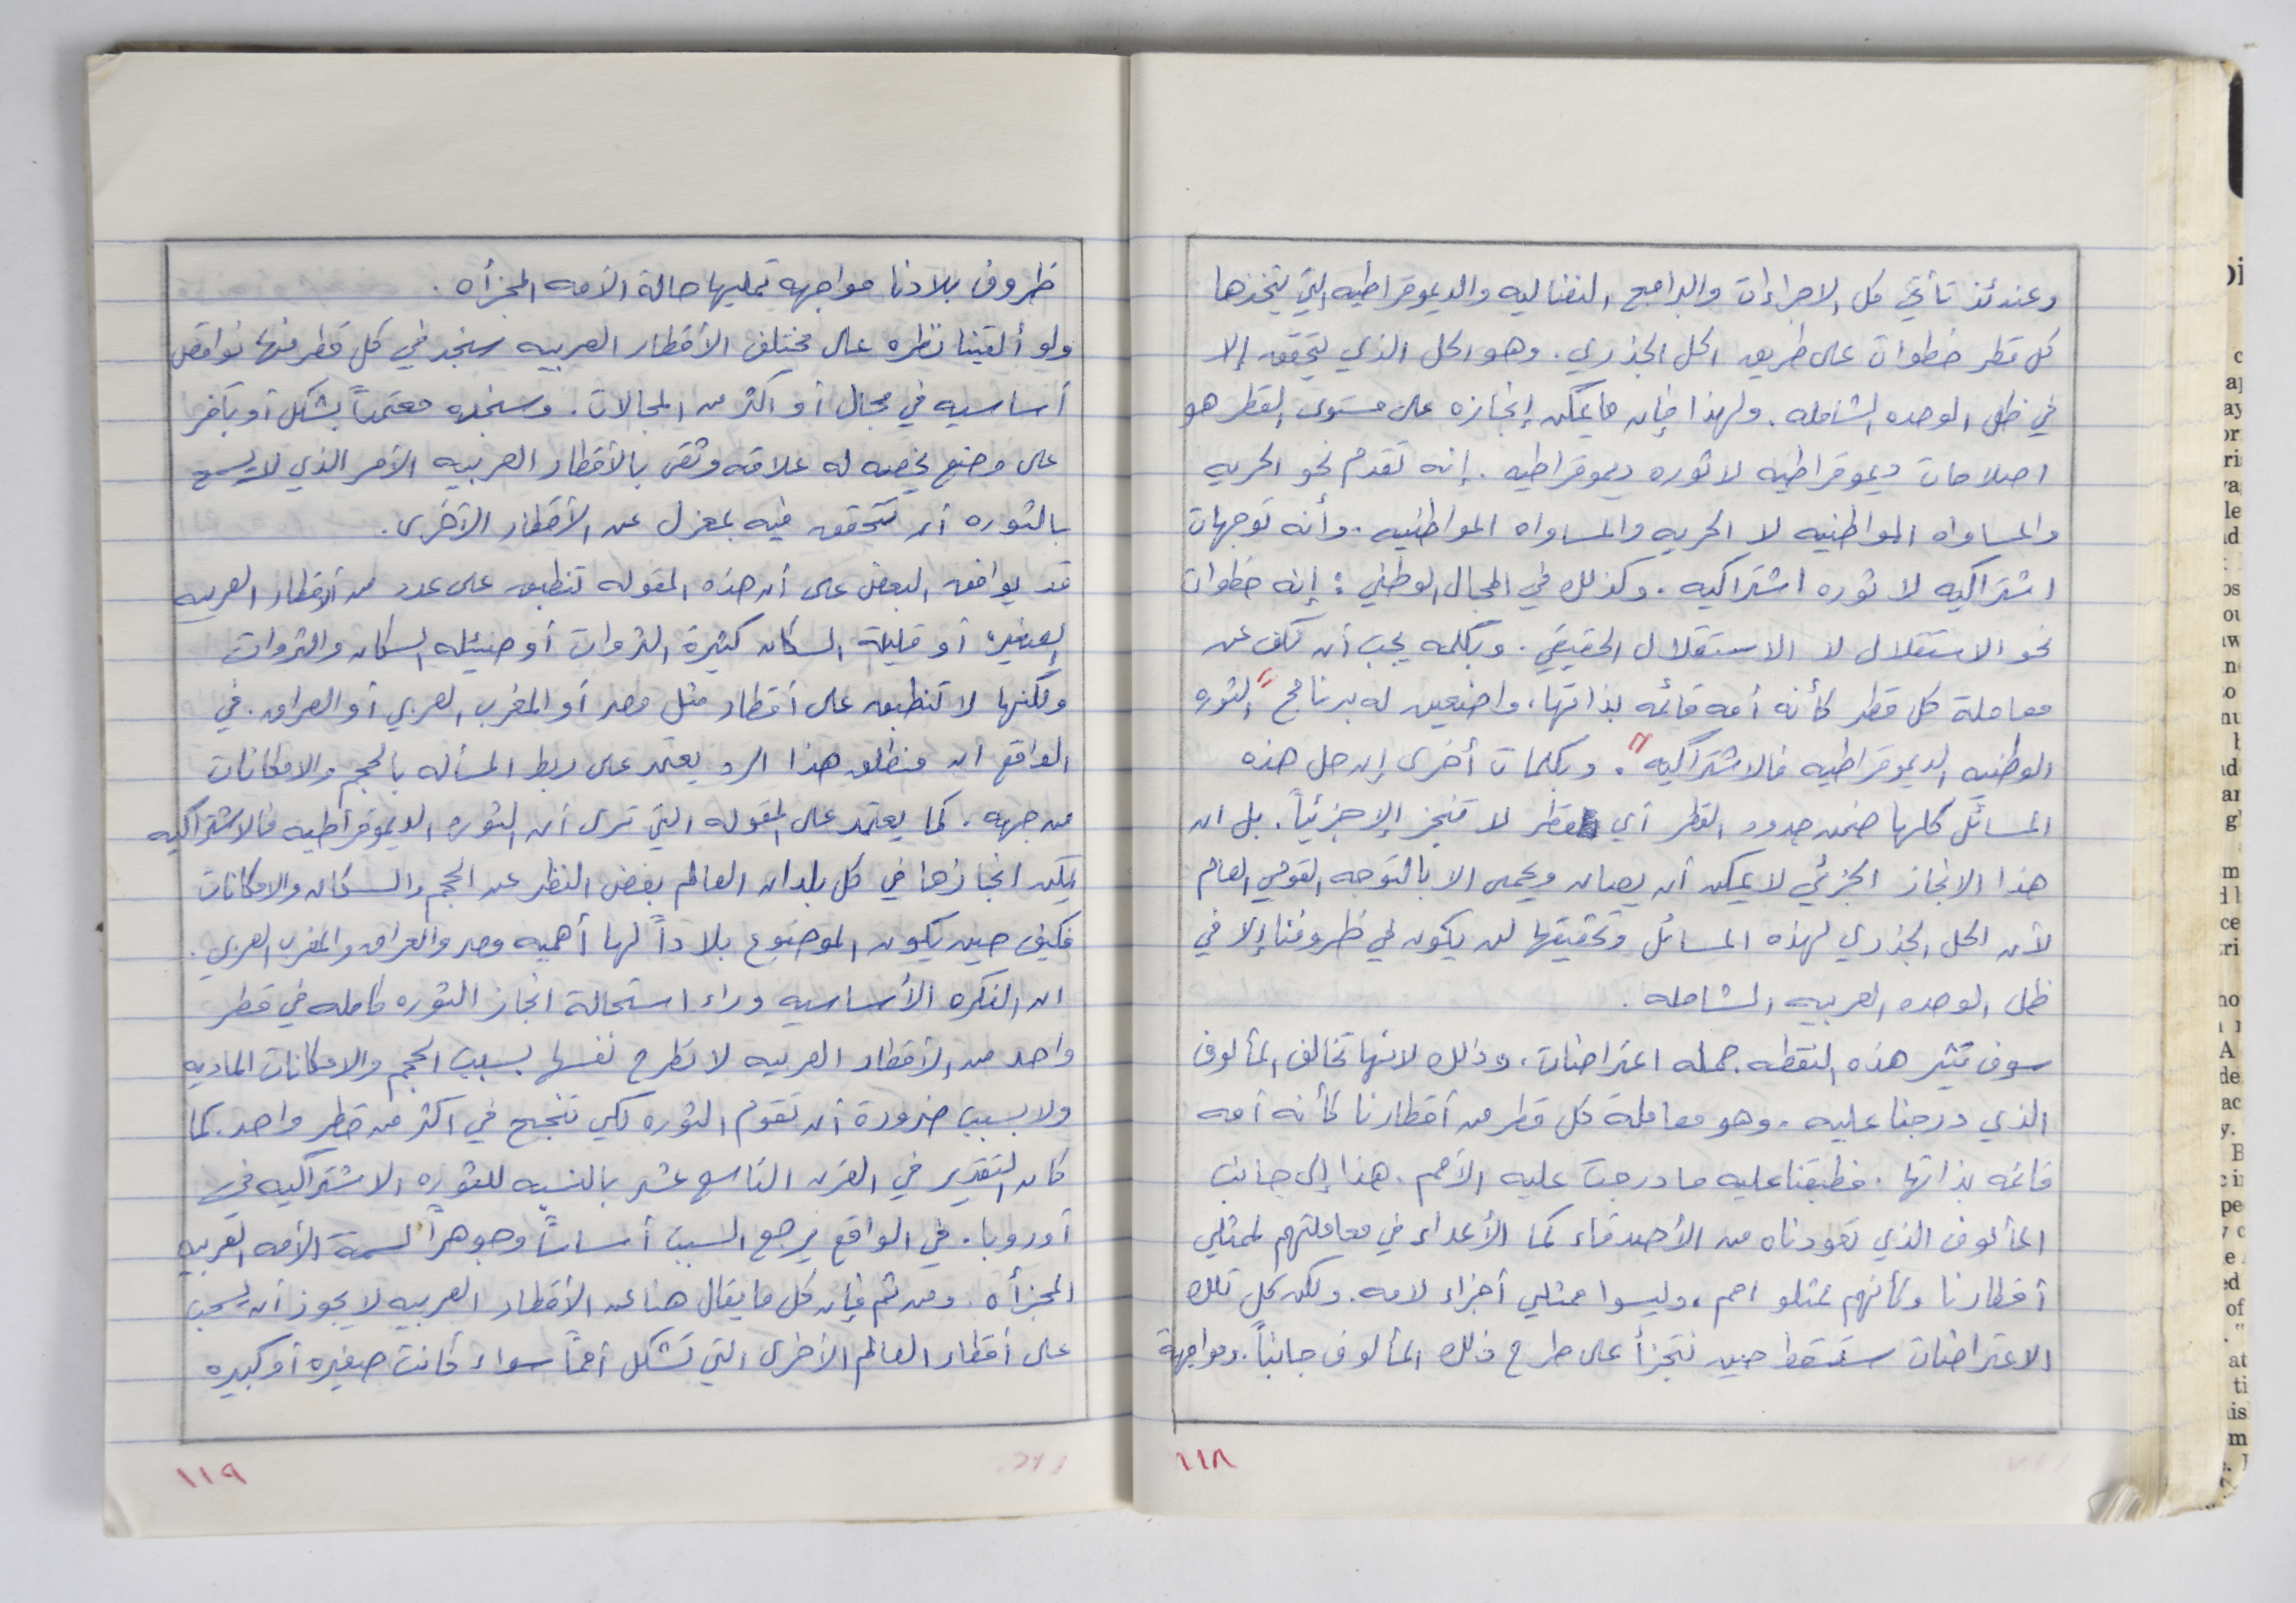 وعندئذ تأتي كل الاجراءات والبرامج النضاليه والديموقراطيه التي يتخذها
كل قطر خطوات على طريق الحل الجذري. وهو الحل الذي يتحقق إلا
في ظل الوحده الشامله. ولهذا فإن ما يمكن إنجازه على مستوى القطر هو
اصلاحات ديموقراطيه لا ثوره ديموقراطيه. إنه تقدم نحو الحريه
والمساواه المواطنيه لا الحريه والمساواه المواطنيه. وأنه توجهات
اشتراكيه لا ثوره اشتراكيه. وكذلك في المجال الوطني: إنه خطوات
نحو الاستقلال لا الاستقلال الحقيقي. وبكلمه يجب أن نكف عن
معاملة كل قطر كأنه أمه قائمه بذاتها، واضعين له برنامج "الثوره
الوطنيه الديموقراطيه فالاشتراكيه". وبكلمات أخرى إن حل هذه
المسائل كلها ضمن حدود القطر أي قطر لا تنجز إلا جزئياً. بل ان
هذا الانجاز الجزئي لا يمكن أن يصان ويحمى الا بالتوجه القومي العام
لأن الحل الجذري لهذه المسائل وتحقيقها لن يكون في ظروفنا إلا في
ظل الوحده العربيه الشامله.
سوف تثير هذه النقطه جمله اعتراضات، وذلك لانها تخالف المألوف
الذي درجنا عليه. وهو معاملة كل قطر من أقطارنا كأنه أمه
قائمه بذاتها. فطبقنا عليه ما درجت عليه الأمم. هذا إلى جانب
المألوف الذي تعودناه من الأصدقاء كما الأعداء في معاملتهم لممثلي
أقطارنا وكأنهم ممثلو امم، وليسوا ممثلي أجزاء لامه. ولكن كل تلك
الاعتراضات ستسقط حين نتجرأ على طرح ذلك المألوف جانباً. ومواجهة
١١٨
ظروف بلادنا مواجهه تمليها حالة الأمه المجزأه.
ولو ألقينا نظره على مختلف الأقطار العربيه سنجد في كل قطر منها نواقص
أساسيه في مجال أو اكثر من المجالات. وسنجده معتمداً بشكل أو بآخر
على وضع يخصه له علاقه وثقى بالأقطار العربيه الأمر الذي لا يسمح
بالثوره أن تتحقق فيه بمعزل عن الأقطار الأخرى.
قد يوافق البعض على أن هذه المقوله تنطبق على عدد من الأقطار العربيه
الصغيره أو قليلة السكان كثيرة الثروات أو ضئيله السكان والثروات
ولكنها لا تنطبق على أقطار مثل مصر أو المغرب العربي أو العراق. في
الواقع ان منطلق هذا الرد يعتمد على ربط المسأله بالحجم والامكانات
من جهه. كما يعتمد على المقوله التي ترى أن الثوره الديموقراطيه فالاشتراكيه
يمكن انجازها في كل بلدان العالم بغض النظر عن الحجم والسكان والامكانات
فكيف حين يكون الموضوع بلاداً لها أهميه ومصر والعراق والمغرب العربي.
ان الفكره الأساسيه وراء استحالة انجاز الثوره كامله في قطر
واحد من الأقطار العربيه لا تطرح نفسها بسبب الحجم والامكانات الماديه
ولا بسبب ضرورة أن تقوم الثوره لكي تنجح في اكثر من قطر واحد. كما
كان التقدير في القرن التاسع عشر بالنسبه للثوره الاشتراكيه في
أوروبا. في الواقع يرجع السبب أساساً وجوهراً لسمة الأمه العربيه
المجزأه. ومن ثم فإن كل ما يقال هنا عن الأقطار العربيه لا يجوز أن يسحب
على أقطار العالم الأخرى التي تشكل أمماً سواء كانت صغيره أو كبيره
١١٩